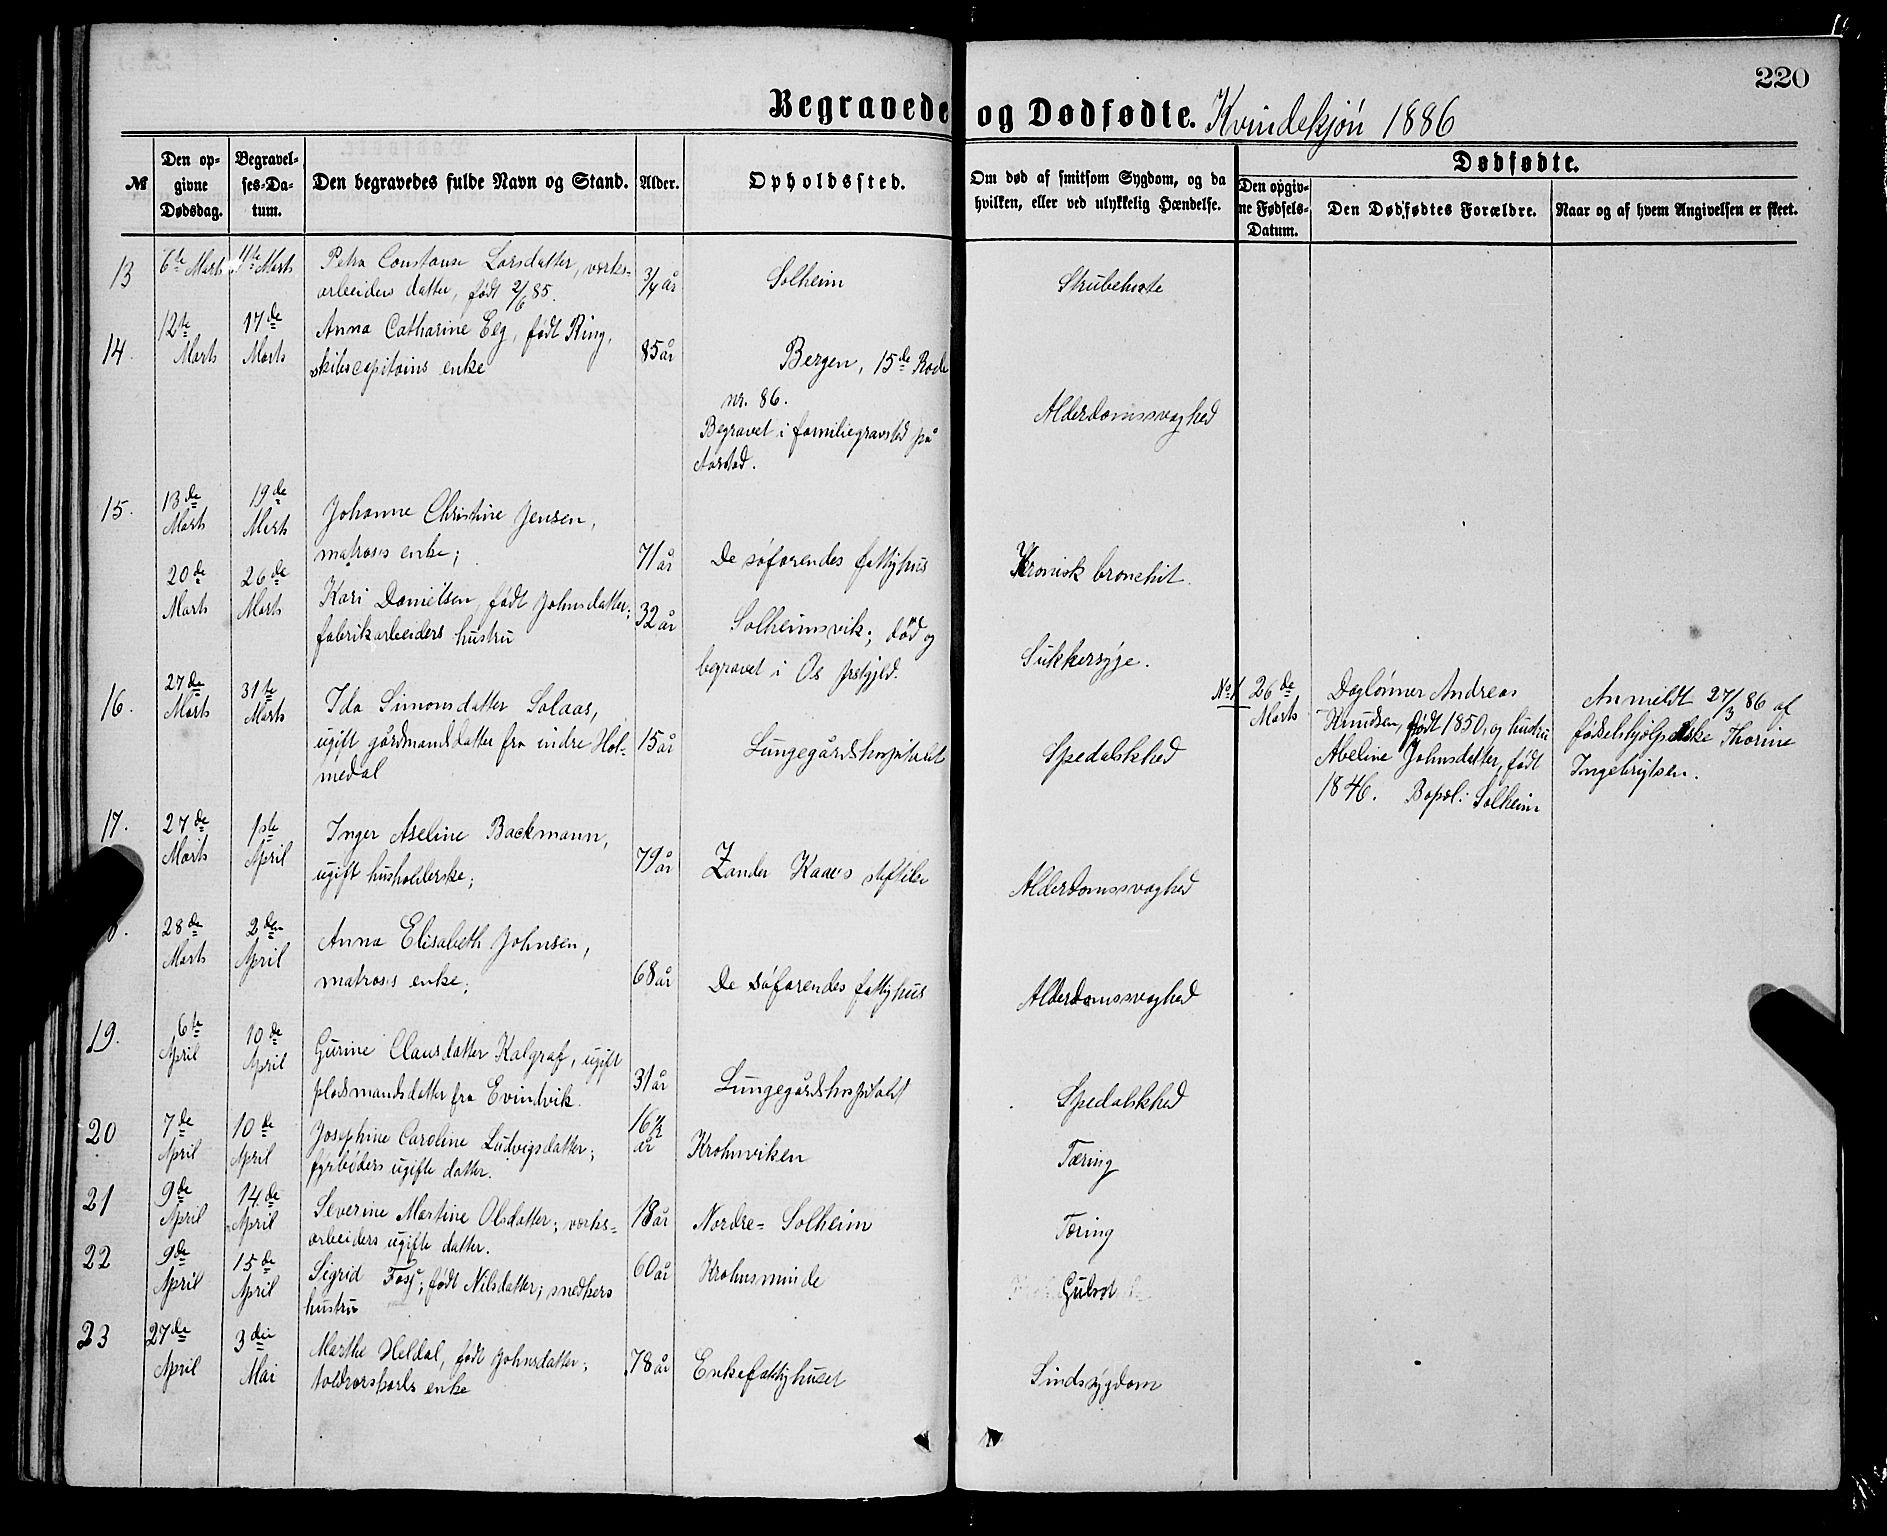 220
Begravede og Dødfødte. Kvindekjøn 1886
№
Den opgivne Dødsdag.
Begravelses-Datum.
Den begravedes fulde Navn og Stand.
Alder.
Opholdssted.
Om død af smitsom Sygdom, og da hvilken, eller ved ulykkelig Hændelse.
Dødfødte.
Den opgivne Fødsels-Datum.
Den Dødfødtes Forældre.
Naar og af hvem Angivelsen er skeet.
13 6te Marts 11te Marts Petra Constanse Larsdatter, værks- 3/4 år Solheim Strubehoste
arbeiders datter, født 2/6 85.
14. 12te Marts 17de Marts Anna Catharine Eeg, født Ring, 85 år Bergen, 15de Rode
skibscapitains enke
nr. 86.
Begravet i familiegravsted på
Aarstad.
Alderdomssvaghed
15. 13de Marts 19de Marts Johanne Christine Jensen,
matroses enke; 71 år De søfarendes fattighus Kronisk bronchit.
20de Marts 26de Marts Kari Danielsen, født Johnsdatter; 32 år Solheimsvik; død og
fabrikarbeiders hustru
begravet i Os prstgjeld. Sukkersyge.
16. 27de Marts 31te Marts Ida Simonsdatter Solaas,
ugift gårdmandsdatter fra indre Hol- 15 år Lungegårdshospitalet Spedalskhed
medal
No 1 26de Marts
Daglønner Andreas
Knudsen, født 1850, og hustru
Abeline Johnsdatter, født
1846. Bopæl: Solheim
Anmeldt 27/3 86 af
fødselshjælperske Thorine
Ingebrigtsen.
17. 27de Marts 1ste April Inger Aseline Backmann,
ugift husholderske; 79 år Zander Kaaes stiftelse Alderdomssvaghed
8. 28de Marts 2den April Anna Elisabeth Johnsen,
matroses enke; 68 år De søfarendes fattighus Alderdomssvaghed
19. 6te April 10de April Gurine Clausdatter Kalgraf, ugift
pladsmandsdatter fra Evindvik. 31 år Lungegårdshospitalet Spedalskhed
20 7de April 10de April Josephine Caroline Ludvigsdatter; 16 1/2 år Krohnviken Tæring
fyrbøders ugifte datter.
21 9de April 14de April Severine Martine Olsdatter; værks- 18 år Nordre-Solheim Tæring
arbeiders ugifte datter.
22 9de April 15de April Sigrid Fosse; født Nilsdatter; snedkers 60 år Krohnsminde Gulsot
hustru
23 27de April 3die Mai Marthe Heldal, født Johnsdatter; 78 år Enkefattighuset Sindssygdom
toldroerskarls enke